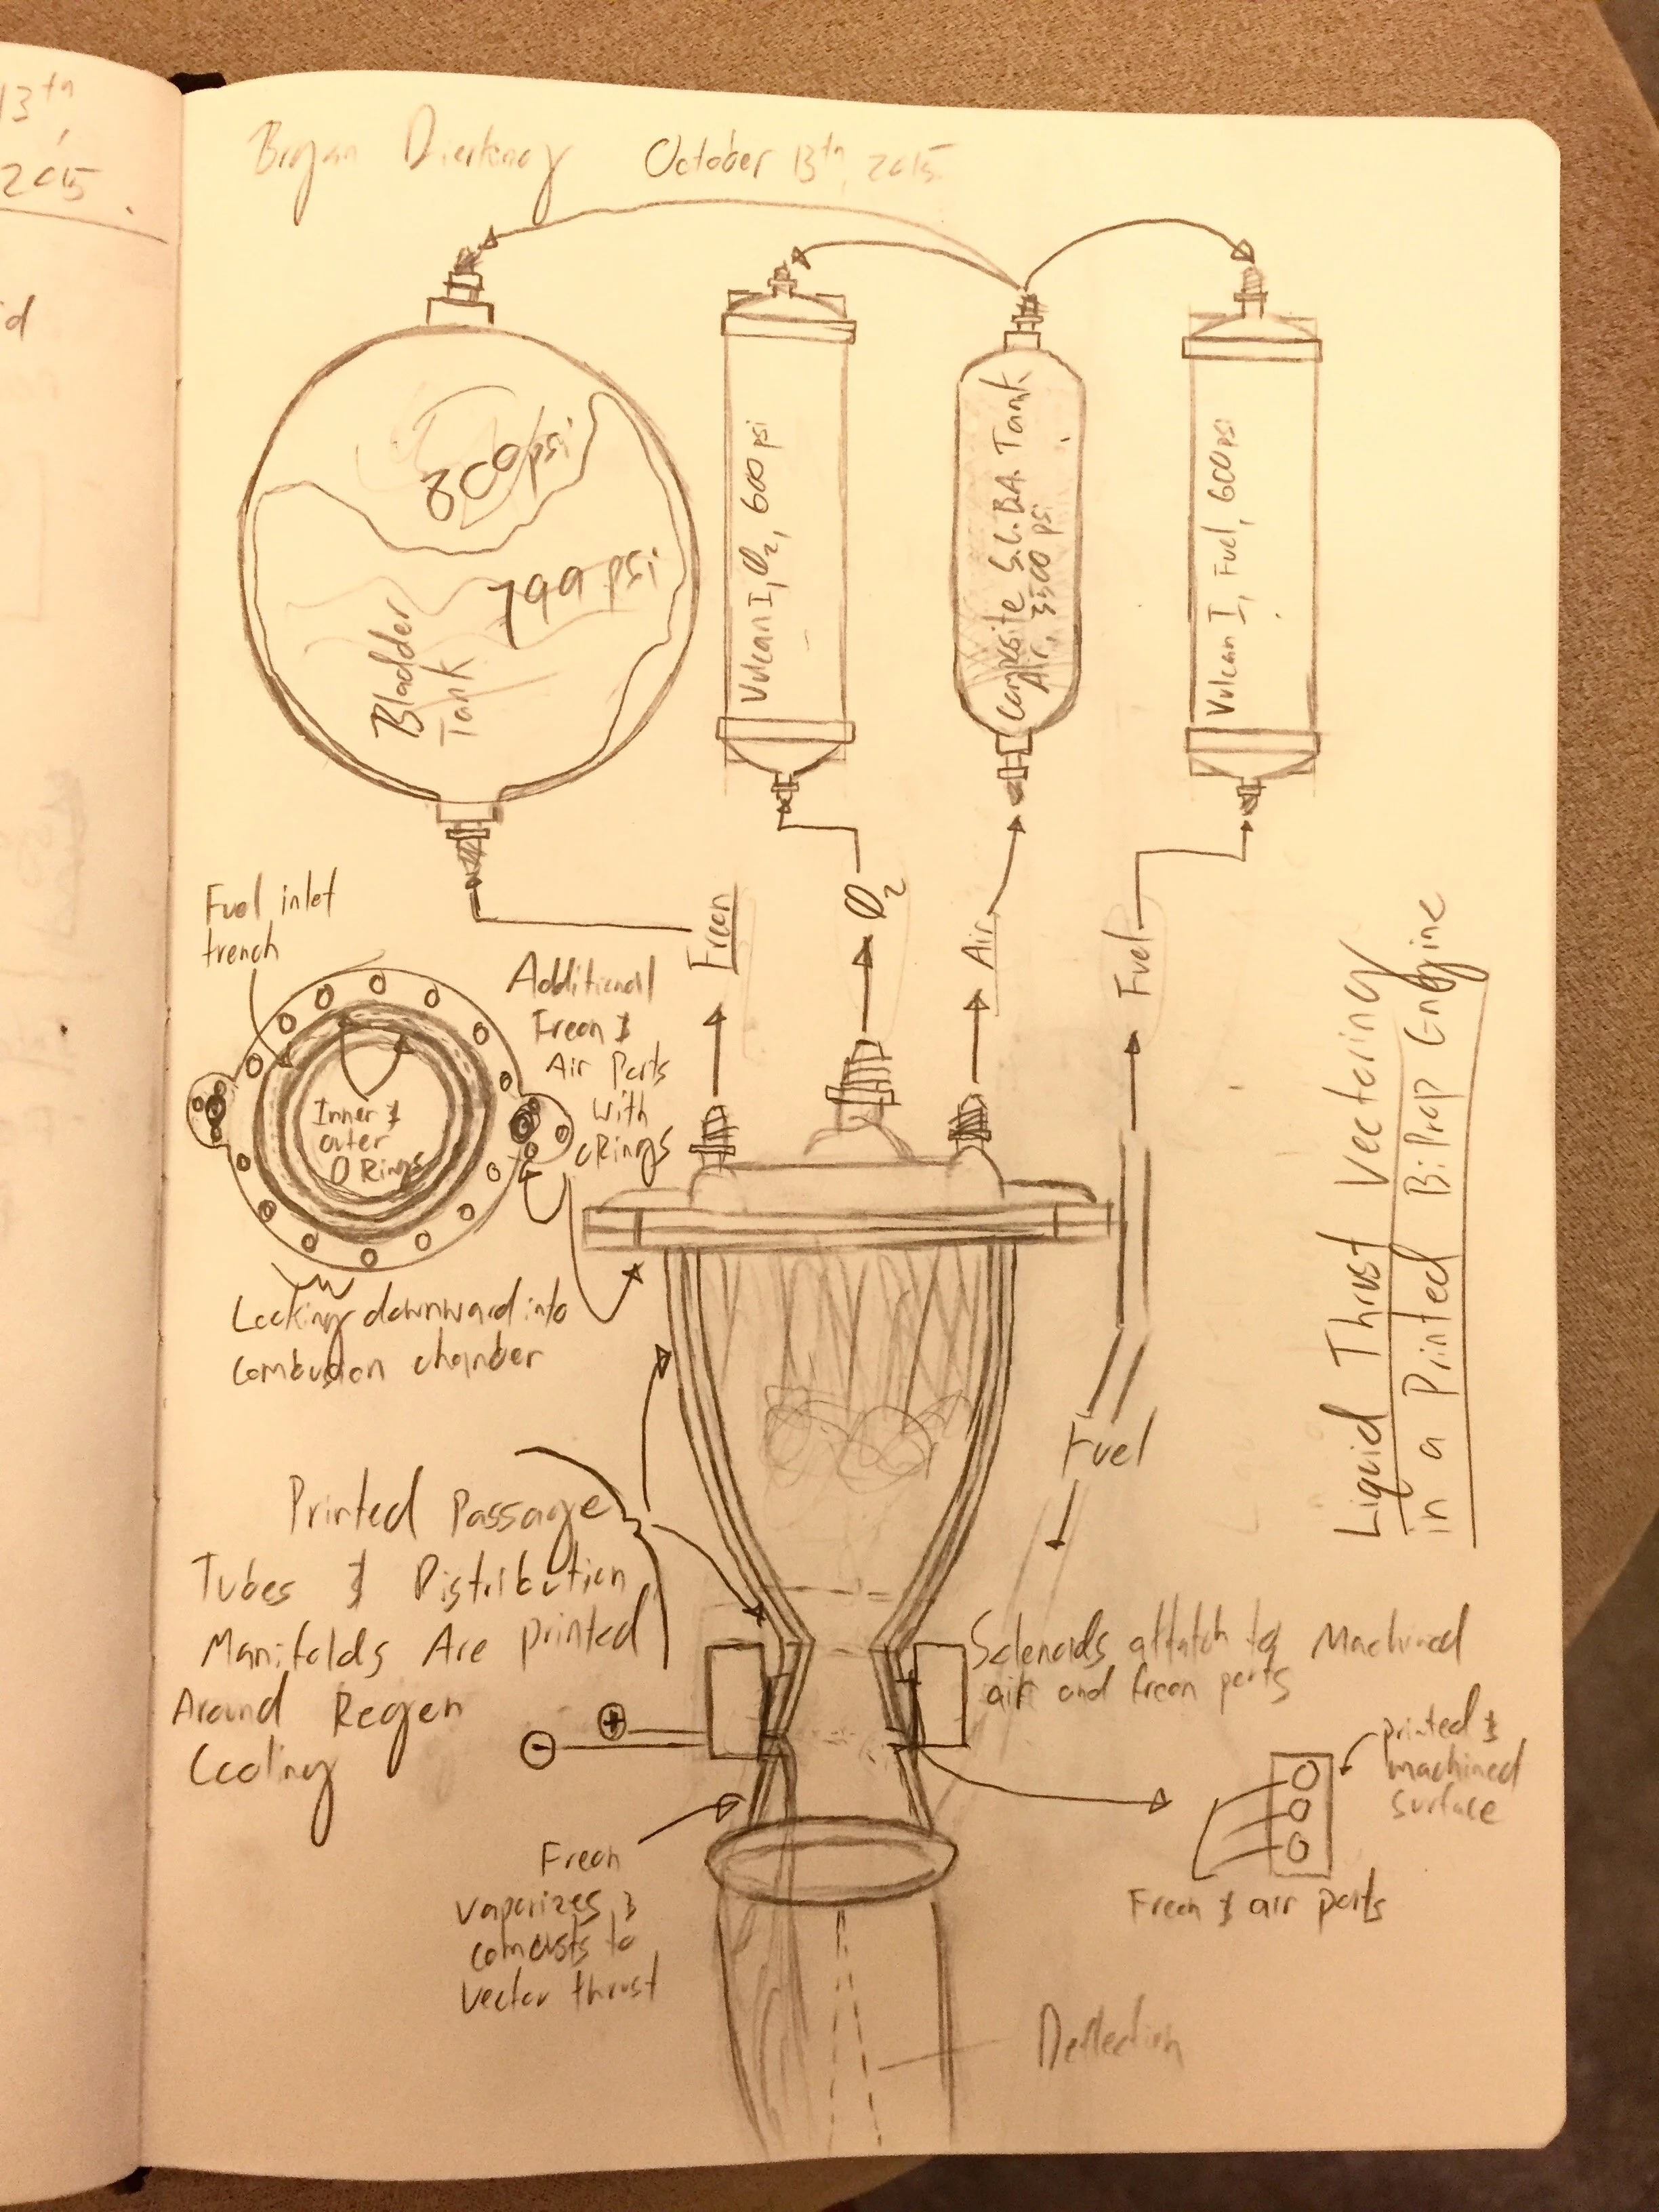 13th,
2015.
Bryan October 13th, 2015
800 psi
799 psi
Bladder
Tank
Vulcan I, O2, 600 psi
Composite S.C.B.A. Tank
Air, 3500 psi
Vulcan I, Fuel, 600 psi
Freon
O2
Air
Fuel
Fuel inlet
trench
Additional
Freon &
Air Ports
with
ORings
Inner &
outer
O Rings
Looking downward into
combusion chamber
Liquid Thrust Vectering
in a Printed BiProp Engine
Fuel
Printed Passage
Tubes & Distribution
Manifolds Are printed
Around Regen
Cooling
Solenoids attatch to Machined
air and freon ports
+
-
printed &
machined
surface
Freon & air ports
Freon
vaporizes &
combusts to
vector thrust
Deflection